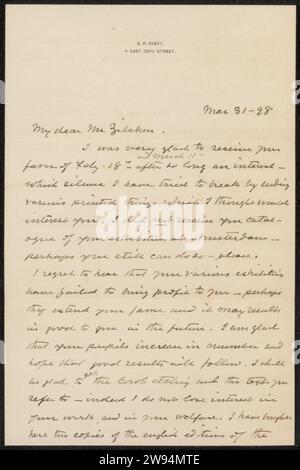 S. P. AVERY,
4 EAST 38TH STREET.
Mar 31-98
My dear Mr Zilcken.
I was very glad to receive your
and March 11th
favor of Feby. 18th after so long an interval -
which silence I have tried to break by sending
various printed things which I thought would
interest you. I did not receive your catal-
ogue of your exhibition at Amsterdam -
perhaps you still can do so - please.
I regret to hear that your various exhibitions
have failed to bring profit to you - perhaps
they extend your fame and it may result
in good to you in the future. I am glad
that your pupils increase in number and
hope that good results will follow. I shall
be glad to get the Corot etching and the text you
refer to - indeed I do not lose interest in
your work and in your welfare. I have bought
here two copies of the english editions of the
alamy
2W94MTE